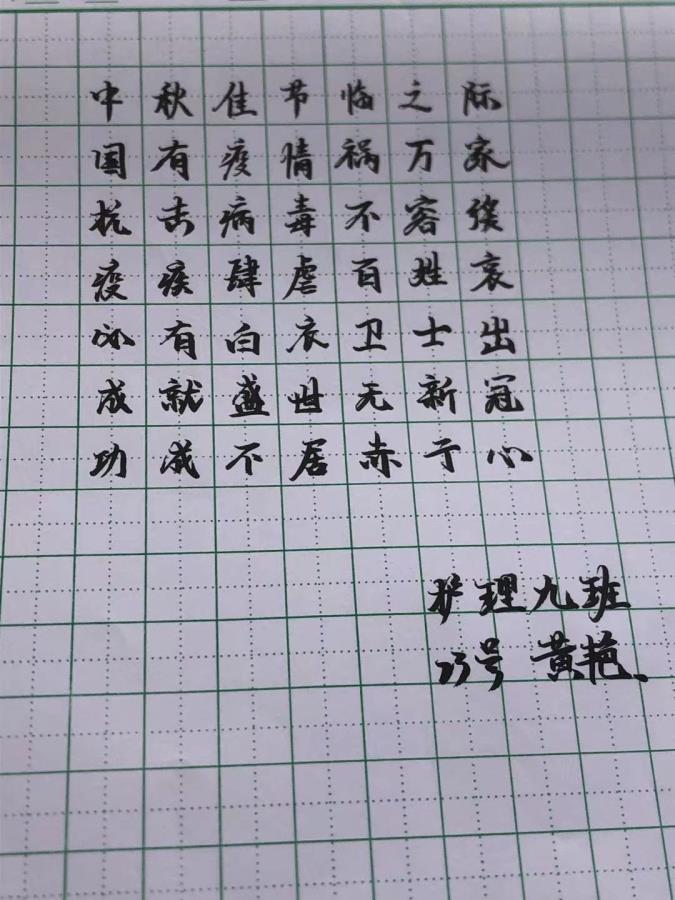 中秋佳节临之际
国有疫情祸万家
抗击病毒不容缓
疫疾肆虐百姓哀
必有白衣卫士出
成就盛世无新冠
功成不居赤子心
护理九班
23号 黄艳、